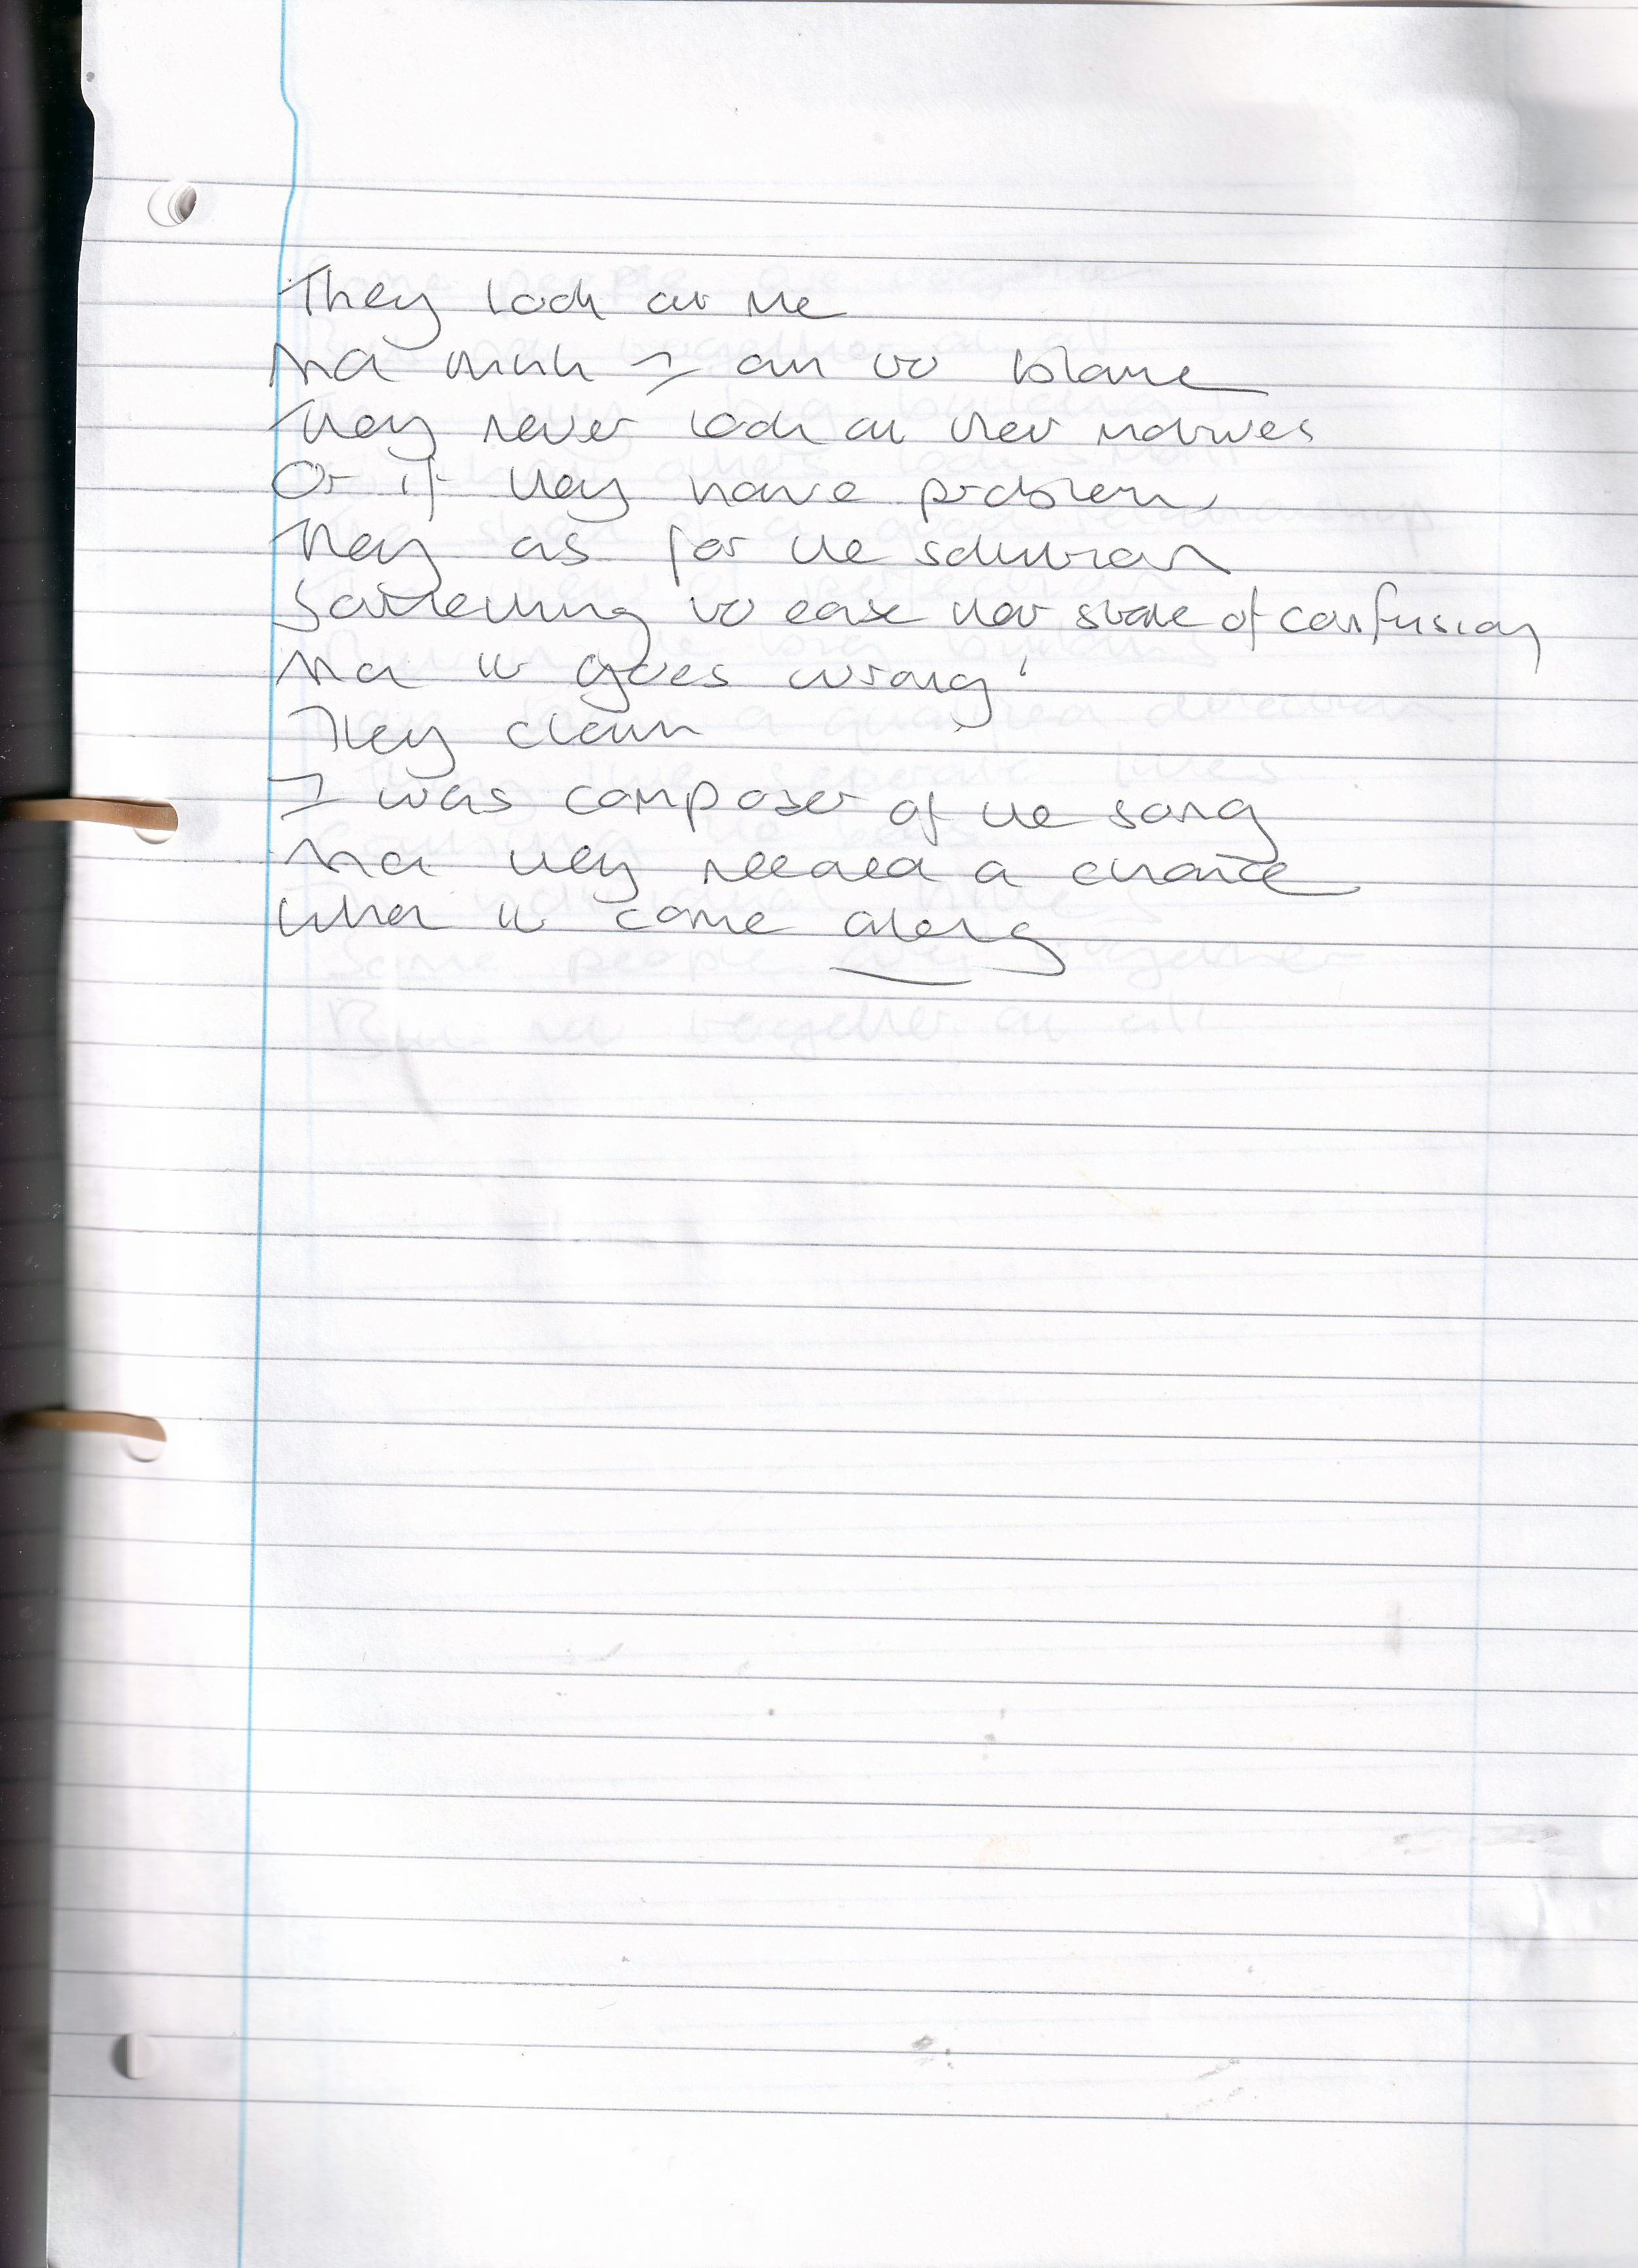 They look at me
And think I am to blame
They never look at their motives
Or if they have problems
They as for the solution
Something to ease their state of confusion
And it goes wrong!
They claim
I was composer of the song
And they needed a chance
When it came along